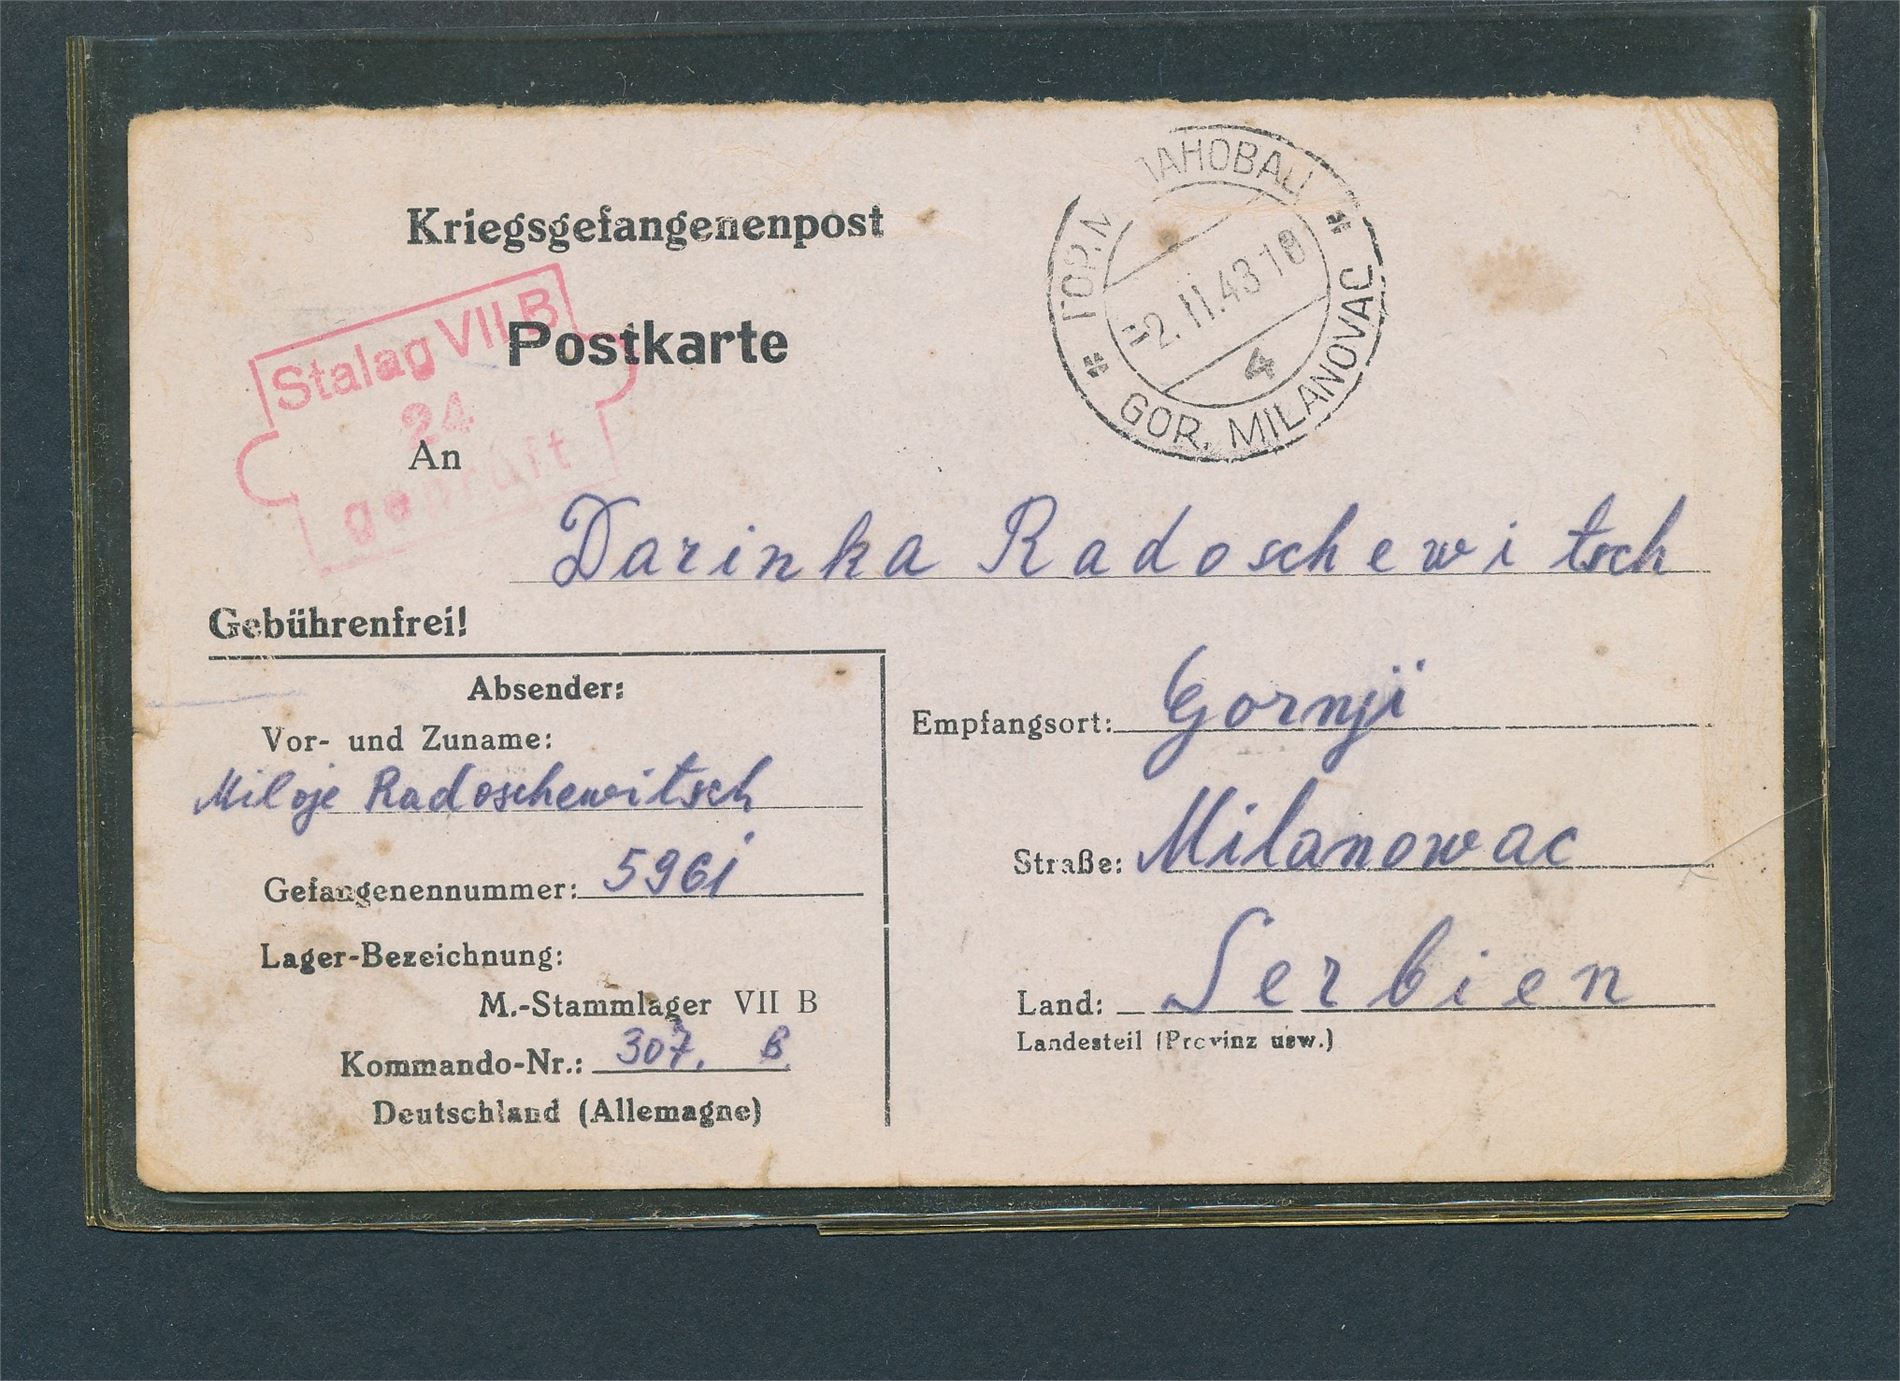 Kriegsgefangenenpost
Postkarte
Stalag VII B
24
geprüft
GOR. MILANOVAC
2. II. 43 18
4
An
Darinka Radoschewitsch
Gebührenfrei!
Absender:
Vor- und Zuname:
Miloje Radoschewitsch
Gefangenennummer: 5961
Lager-Bezeichnung:
M.-Stammlager VII B
Kommando-Nr.: 307. B.
Deutschland (Allemagne)
Empfangsort: Gornji
Straße: Milanowac
Land: Serbien
Landesteil (Provinz usw.)